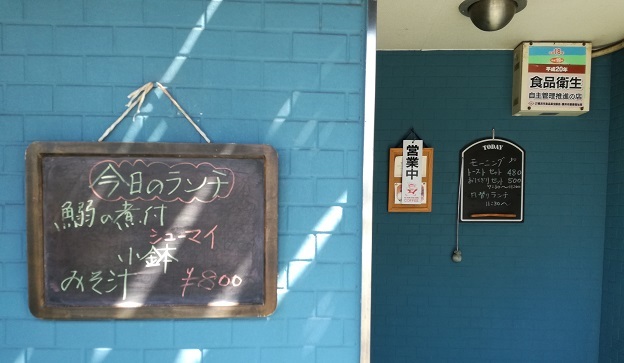 今日のランチ
鰯の煮付
シューマイ
小鉢
みそ汁 ¥800
営業中
TODAY
モーニング
トーストセット 480
おにぎりセット 500
日替りランチ
11:30〜
平成20年
食品衛生
自主管理推進の店